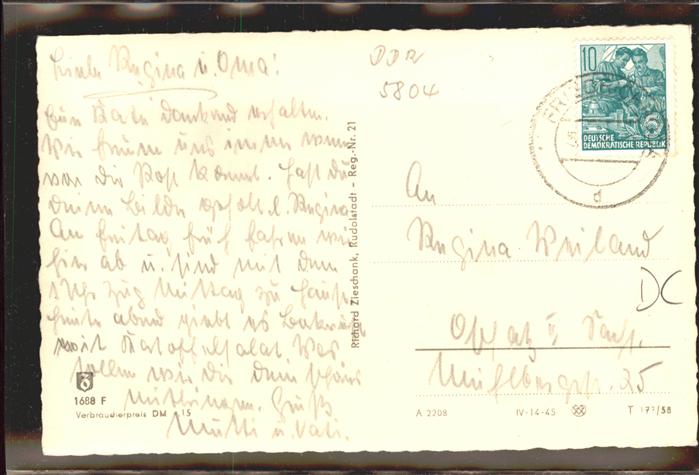 Liebe Regina u. Oma!
Eure Karte dankend erhalten.
Wir freuen uns immer wenn
von die Post kommt. Hast du
deine Bilder geholt l. Regina
Am Freitag früh fahren wir
hier ab u. sind mit dem
Uhr Zug Mittag zu Hause
heute abend giebt es
mit Kartoffelsalat. Was
sollen wir dir denn schönes
mitbringen. Gruß
Mutti u. Vati.
1688 F
Verbraucherpreis DM 15
Richard Zieschank, Rudolstadt – Reg.-Nr. 21
DDR
5804
10
DEUTSCHE
DEMOKRATISCHE REPUBLIK
d
An
Regina Weiland
DC
Oschatz i/ Sachs.
Mühlbergstr. 25
A 2208 IV-14-45 T 177/58